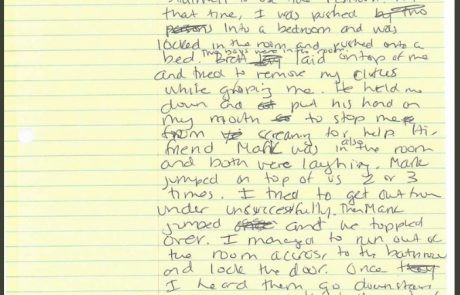 that time, I was pushed by two
person into a bedroom and was
locked in the room and pushed onto a
two boys were in the room.
bed. Brett laid on top of me
and tried to remove my clothes
while groping me. He held me
down and put his hand on
my mouth to stop me
from screaming for help. His
friend Mark was also in the room
and both were laughing. Mark
jumped on top of us 2 or 3
times. I tried to get out from
under unsuccessfully. Then Mark
jumped and we toppled
over. I managed to run out of
the room across to the bathroom
and lock the door. Once
I heard them go downstairs,